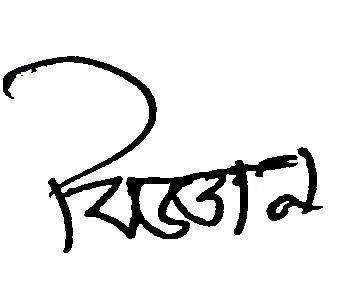 বিজ্ঞান